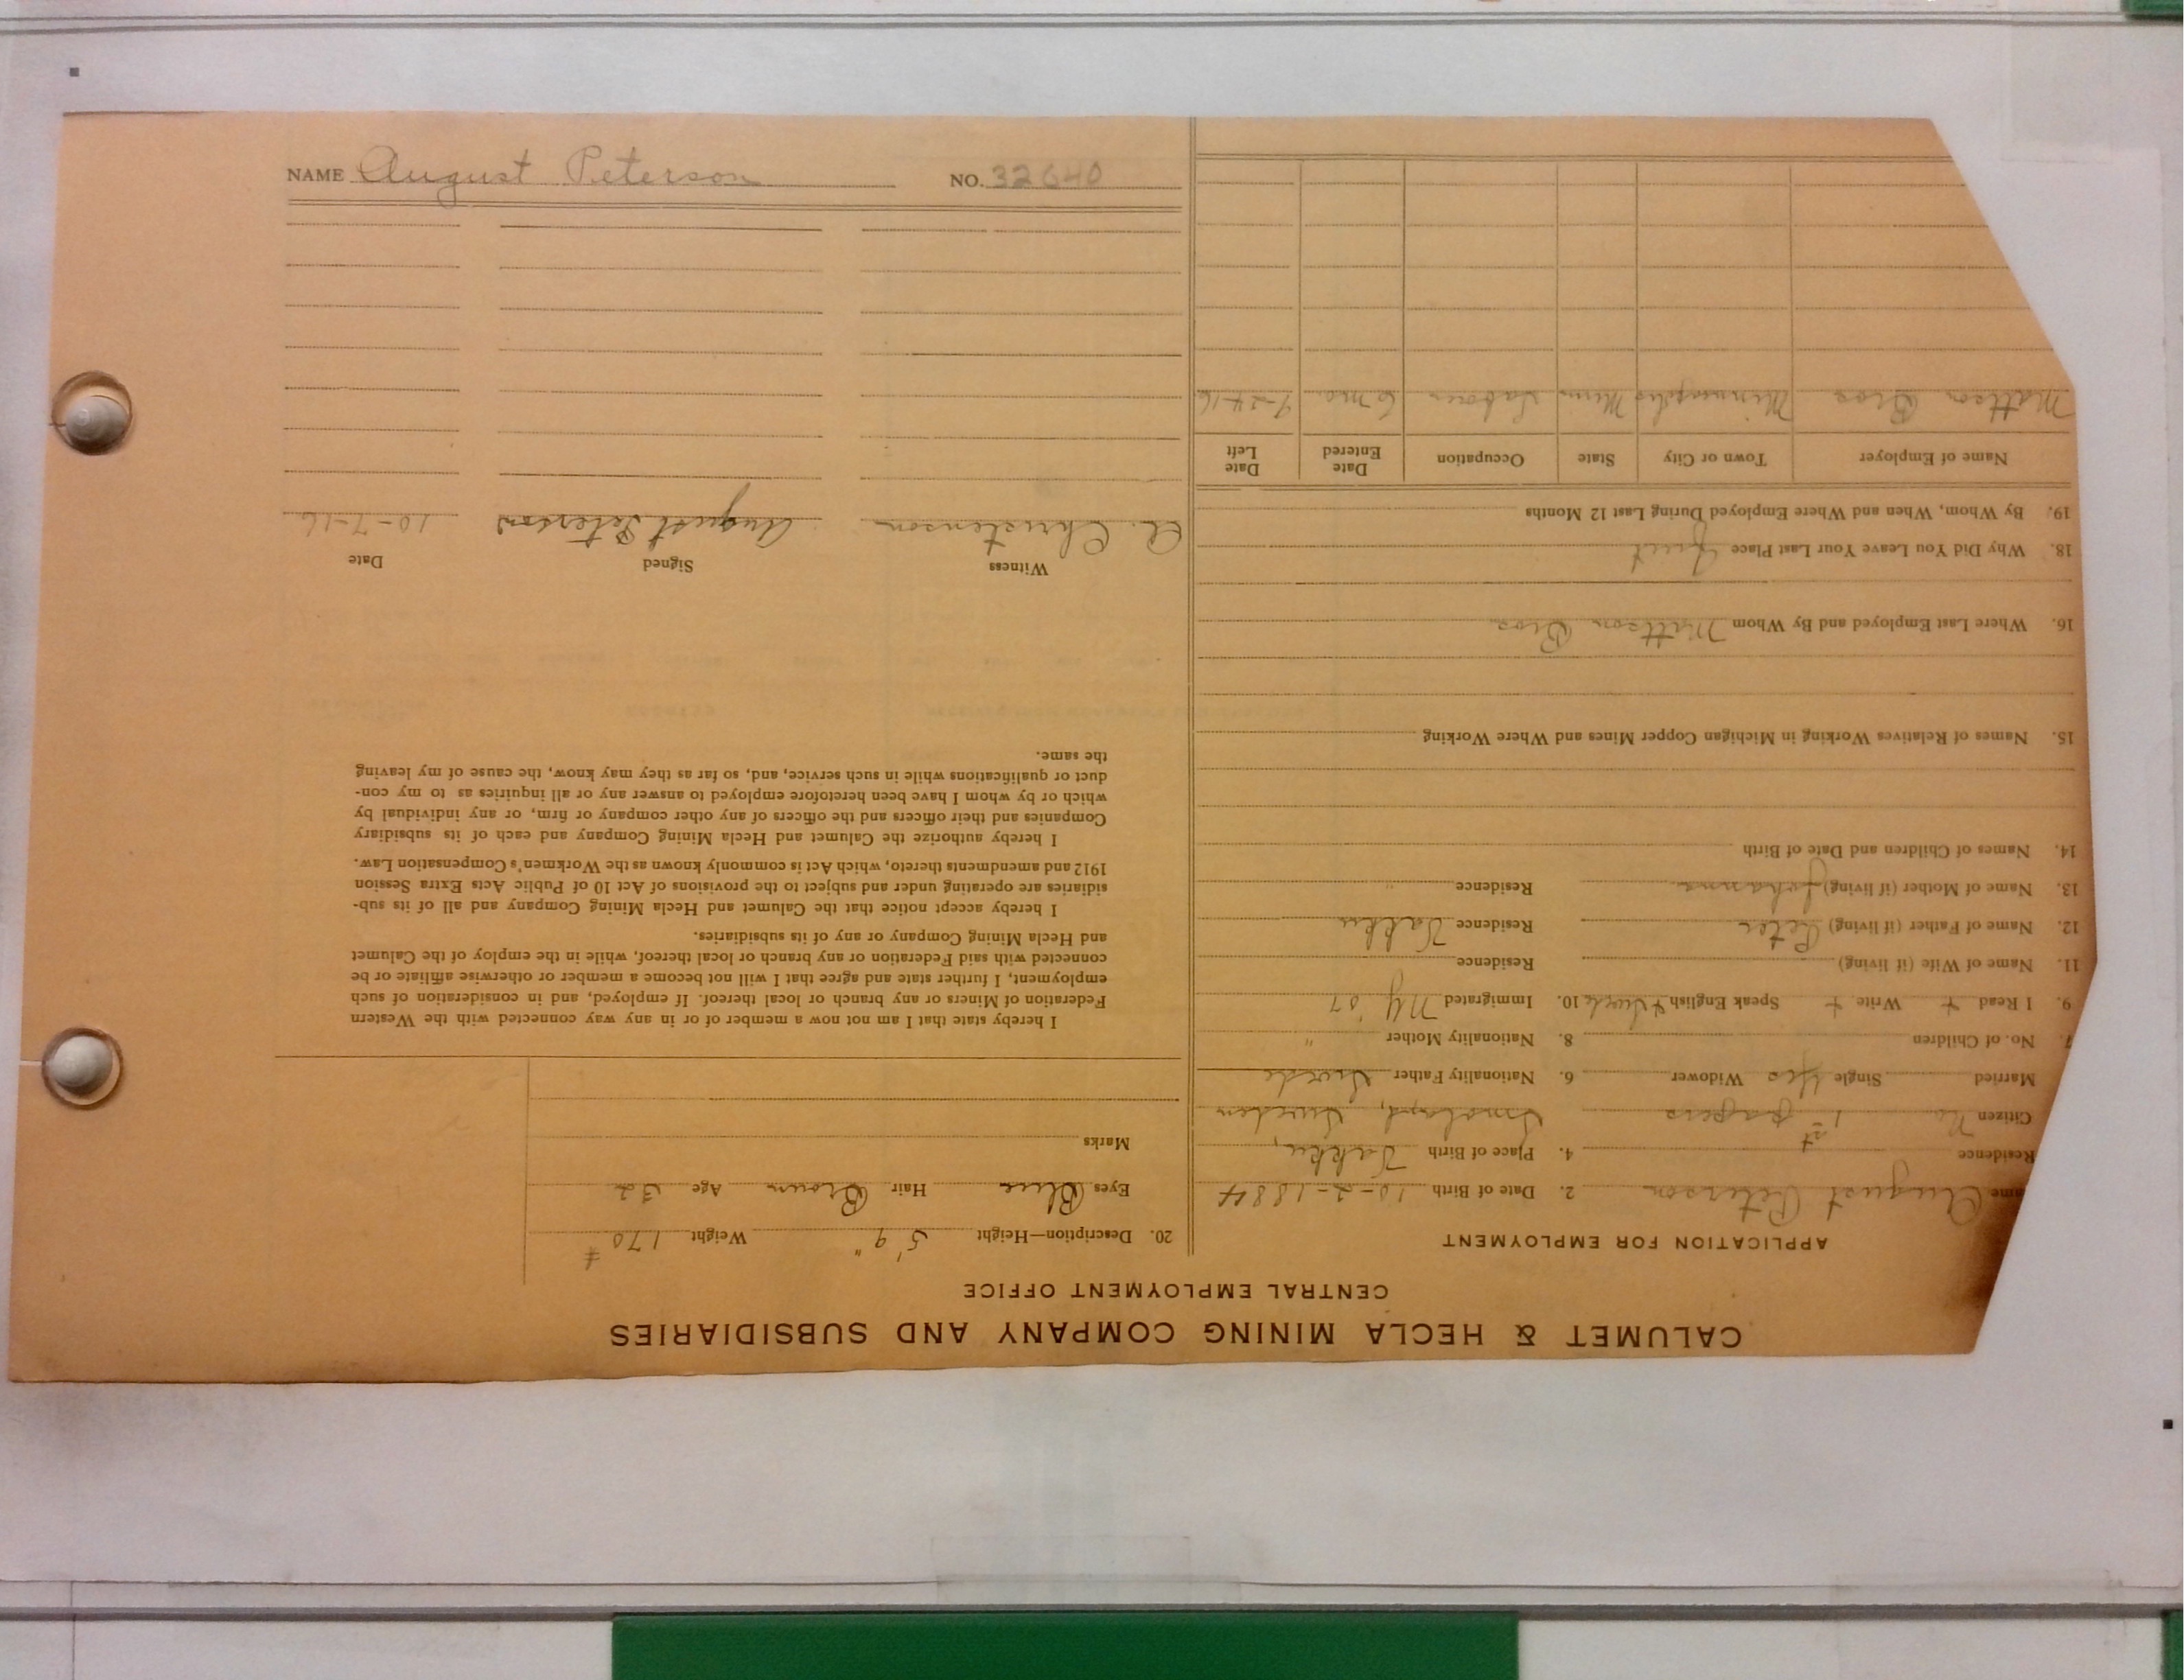 NAME August Peterson NO. 32640
CALUMET & HECLA MINING COMPANY AND SUBSIDIARIES
CENTRAL EMPLOYMENT OFFICE
APPLICATION FOR EMPLOYMENT
ame August Peterson 2. Date of Birth 10-2-1884
Residence 4. Place of Birth
Citizen No 1st papers Smoland, Sweden
Married Single Yes Widower 6. Nationality Father Swede
7. No. of Children 8. Nationality Mother "
9. I Read + Write + Speak English + Swede 10. Immigrated NY '07
11. Name of Wife (if living) Residence
12. Name of Father (if living) Peter Residence
13. Name of Mother (if living) Johanna Residence "
14. Names of Children and Date of Birth
15. Names of Relatives Working in Michigan Copper Mines and Where Working
16. Where Last Employed and By Whom Mattson Bros
18. Why Did You Leave Your Last Place Quit
19. By Whom, When and Where Employed During Last 12 Months
Name of Employer Town or City State Occupation Date Entered Date Left
Mattson Bros Minneapolis Minn Laborer 6 mo. 9-24-16
20. Description—Height 5' 9" Weight 170 #
Eyes Blue Hair Brown Age 32
Marks
I hereby state that I am not now a member of or in any way connected with the Western
Federation of Miners or any branch or local thereof. If employed, and in consideration of such
employment, I further state and agree that I will not become a member or otherwise affiliate or be
connected with said Federation or any branch or local thereof, while in the employ of the Calumet
and Hecla Mining Company or any of its subsidiaries.
I hereby accept notice that the Calumet and Hecla Mining Company and all of its sub-
sidiaries are operating under and subject to the provisions of Act 10 of Public Acts Extra Session
1912 and amendments thereto, which Act is commonly known as the Workmen's Compensation Law.
I hereby authorize the Calumet and Hecla Mining Company and each of its subsidiary
Companies and their officers and the officers of any other company or firm, or any individual by
which or by whom I have been heretofore employed to answer any or all inquiries as to my con-
duct or qualifications while in such service, and, so far as they may know, the cause of my leaving
the same.
Witness Signed Date
A. Christenson August Peterson 10-7-16